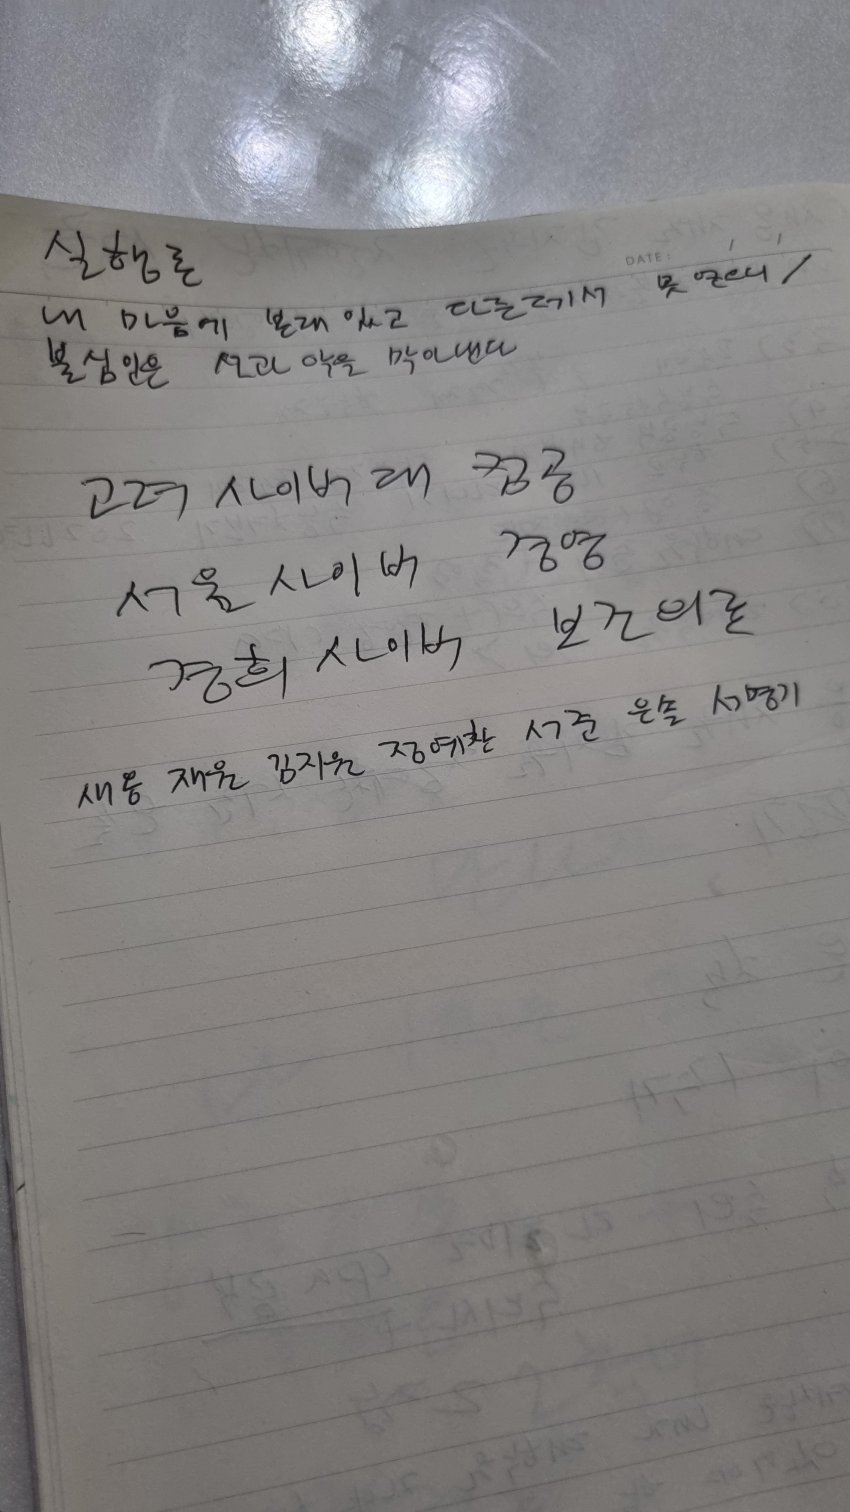 실행론
DATE:
내 마음에 본래 있고 다른데서 못 얻으니 /
불심인은 선과 악을 막아낸다
고려 사이버대 컴공
서울 사이버 경영
경희 사이버 보건의료
새롬 재윤 김지원 정예찬 서준 은솔 서명기